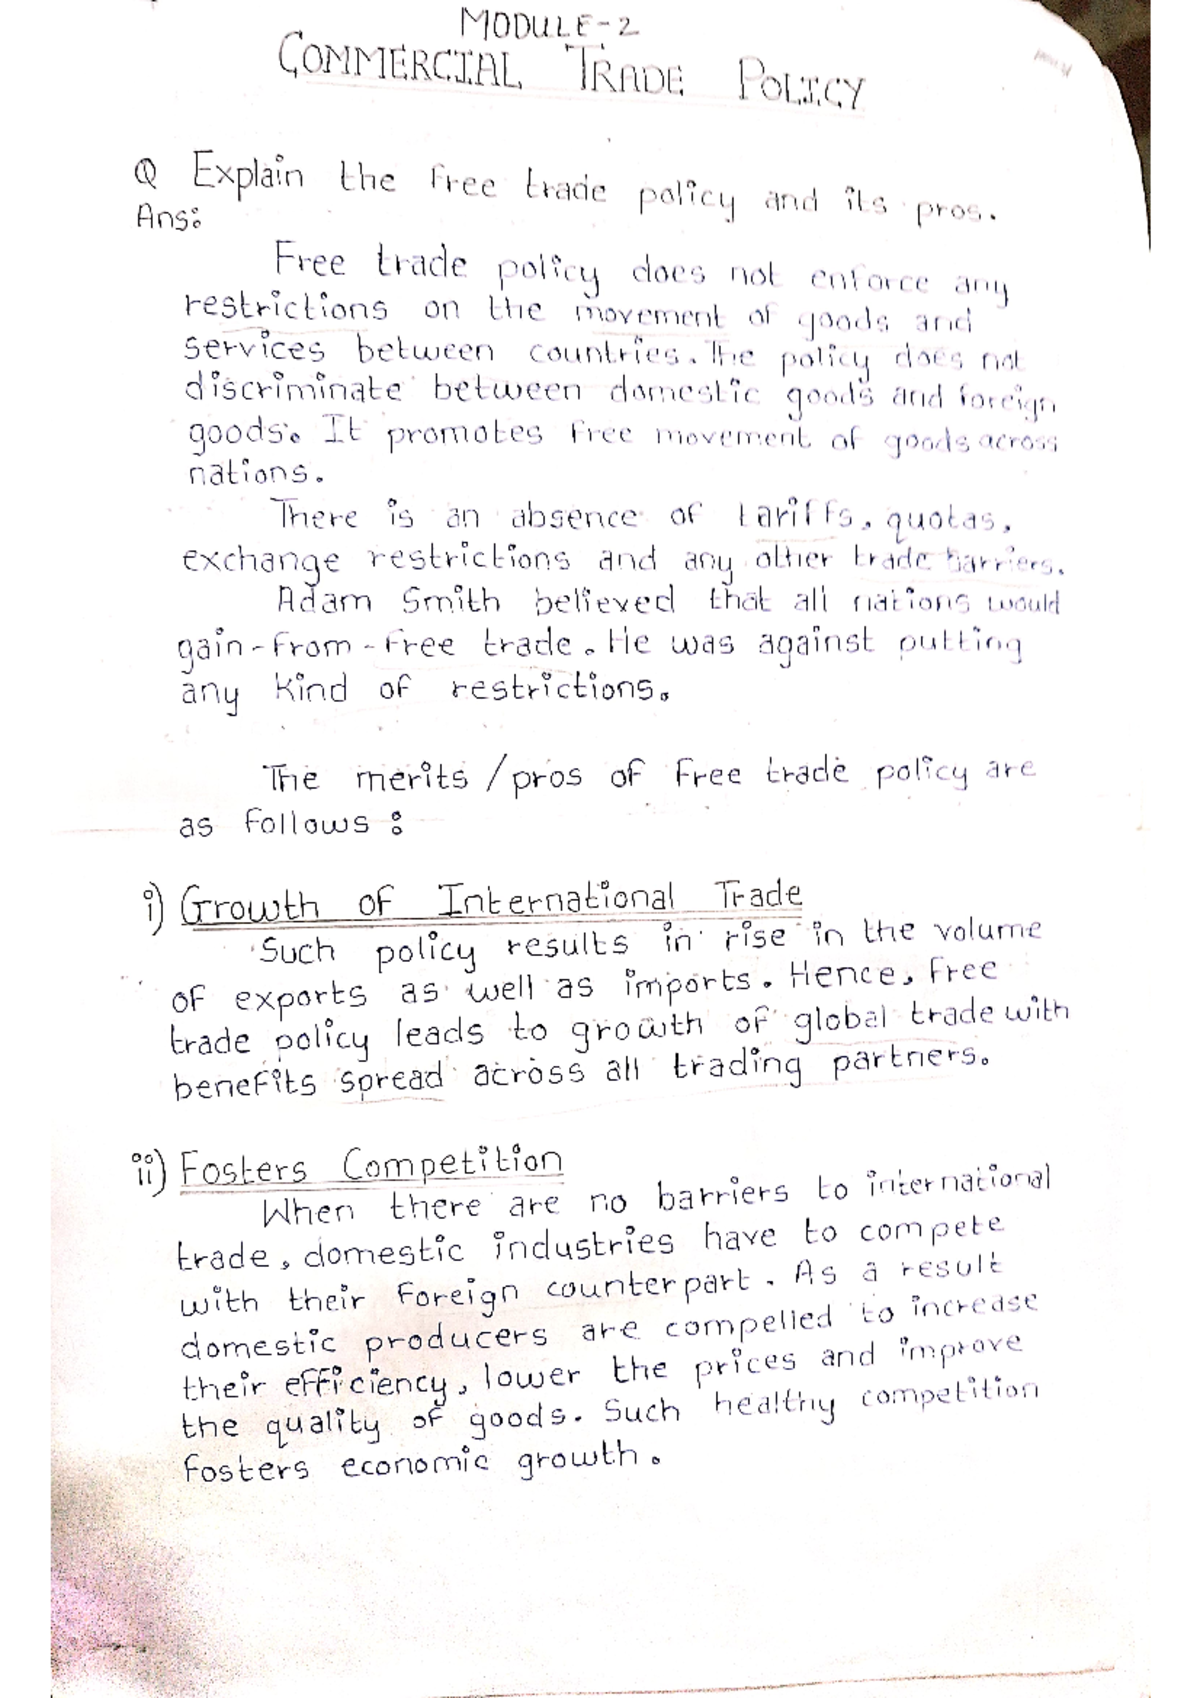 MODULE-2
COMMERCIAL TRADE POLICY
Q Explain the free trade policy and its pros.
Ans:
Free trade policy does not enforce any
restrictions on the movement of goods and
services between countries. The policy does not
discriminate between domestic goods and foreign
goods. It promotes free movement of goods across
nations.
There is an absence of tariffs, quotas,
exchange restrictions and any other trade barriers.
Adam Smith believed that all nations would
gain-from-free trade. He was against putting
any kind of restrictions.
The merits / pros of free trade policy are
as follows :
i) Growth of International Trade
Such policy results in rise in the volume
of exports as well as imports. Hence, free
trade policy leads to growth of global trade with
benefits spread across all trading partners.
ii) Fosters Competition
When there are no barriers to international
trade, domestic industries have to compete
with their foreign counterpart. As a result
domestic producers are compelled to increase
their efficiency, lower the prices and improve
the quality of goods. Such healthy competition
fosters economic growth.